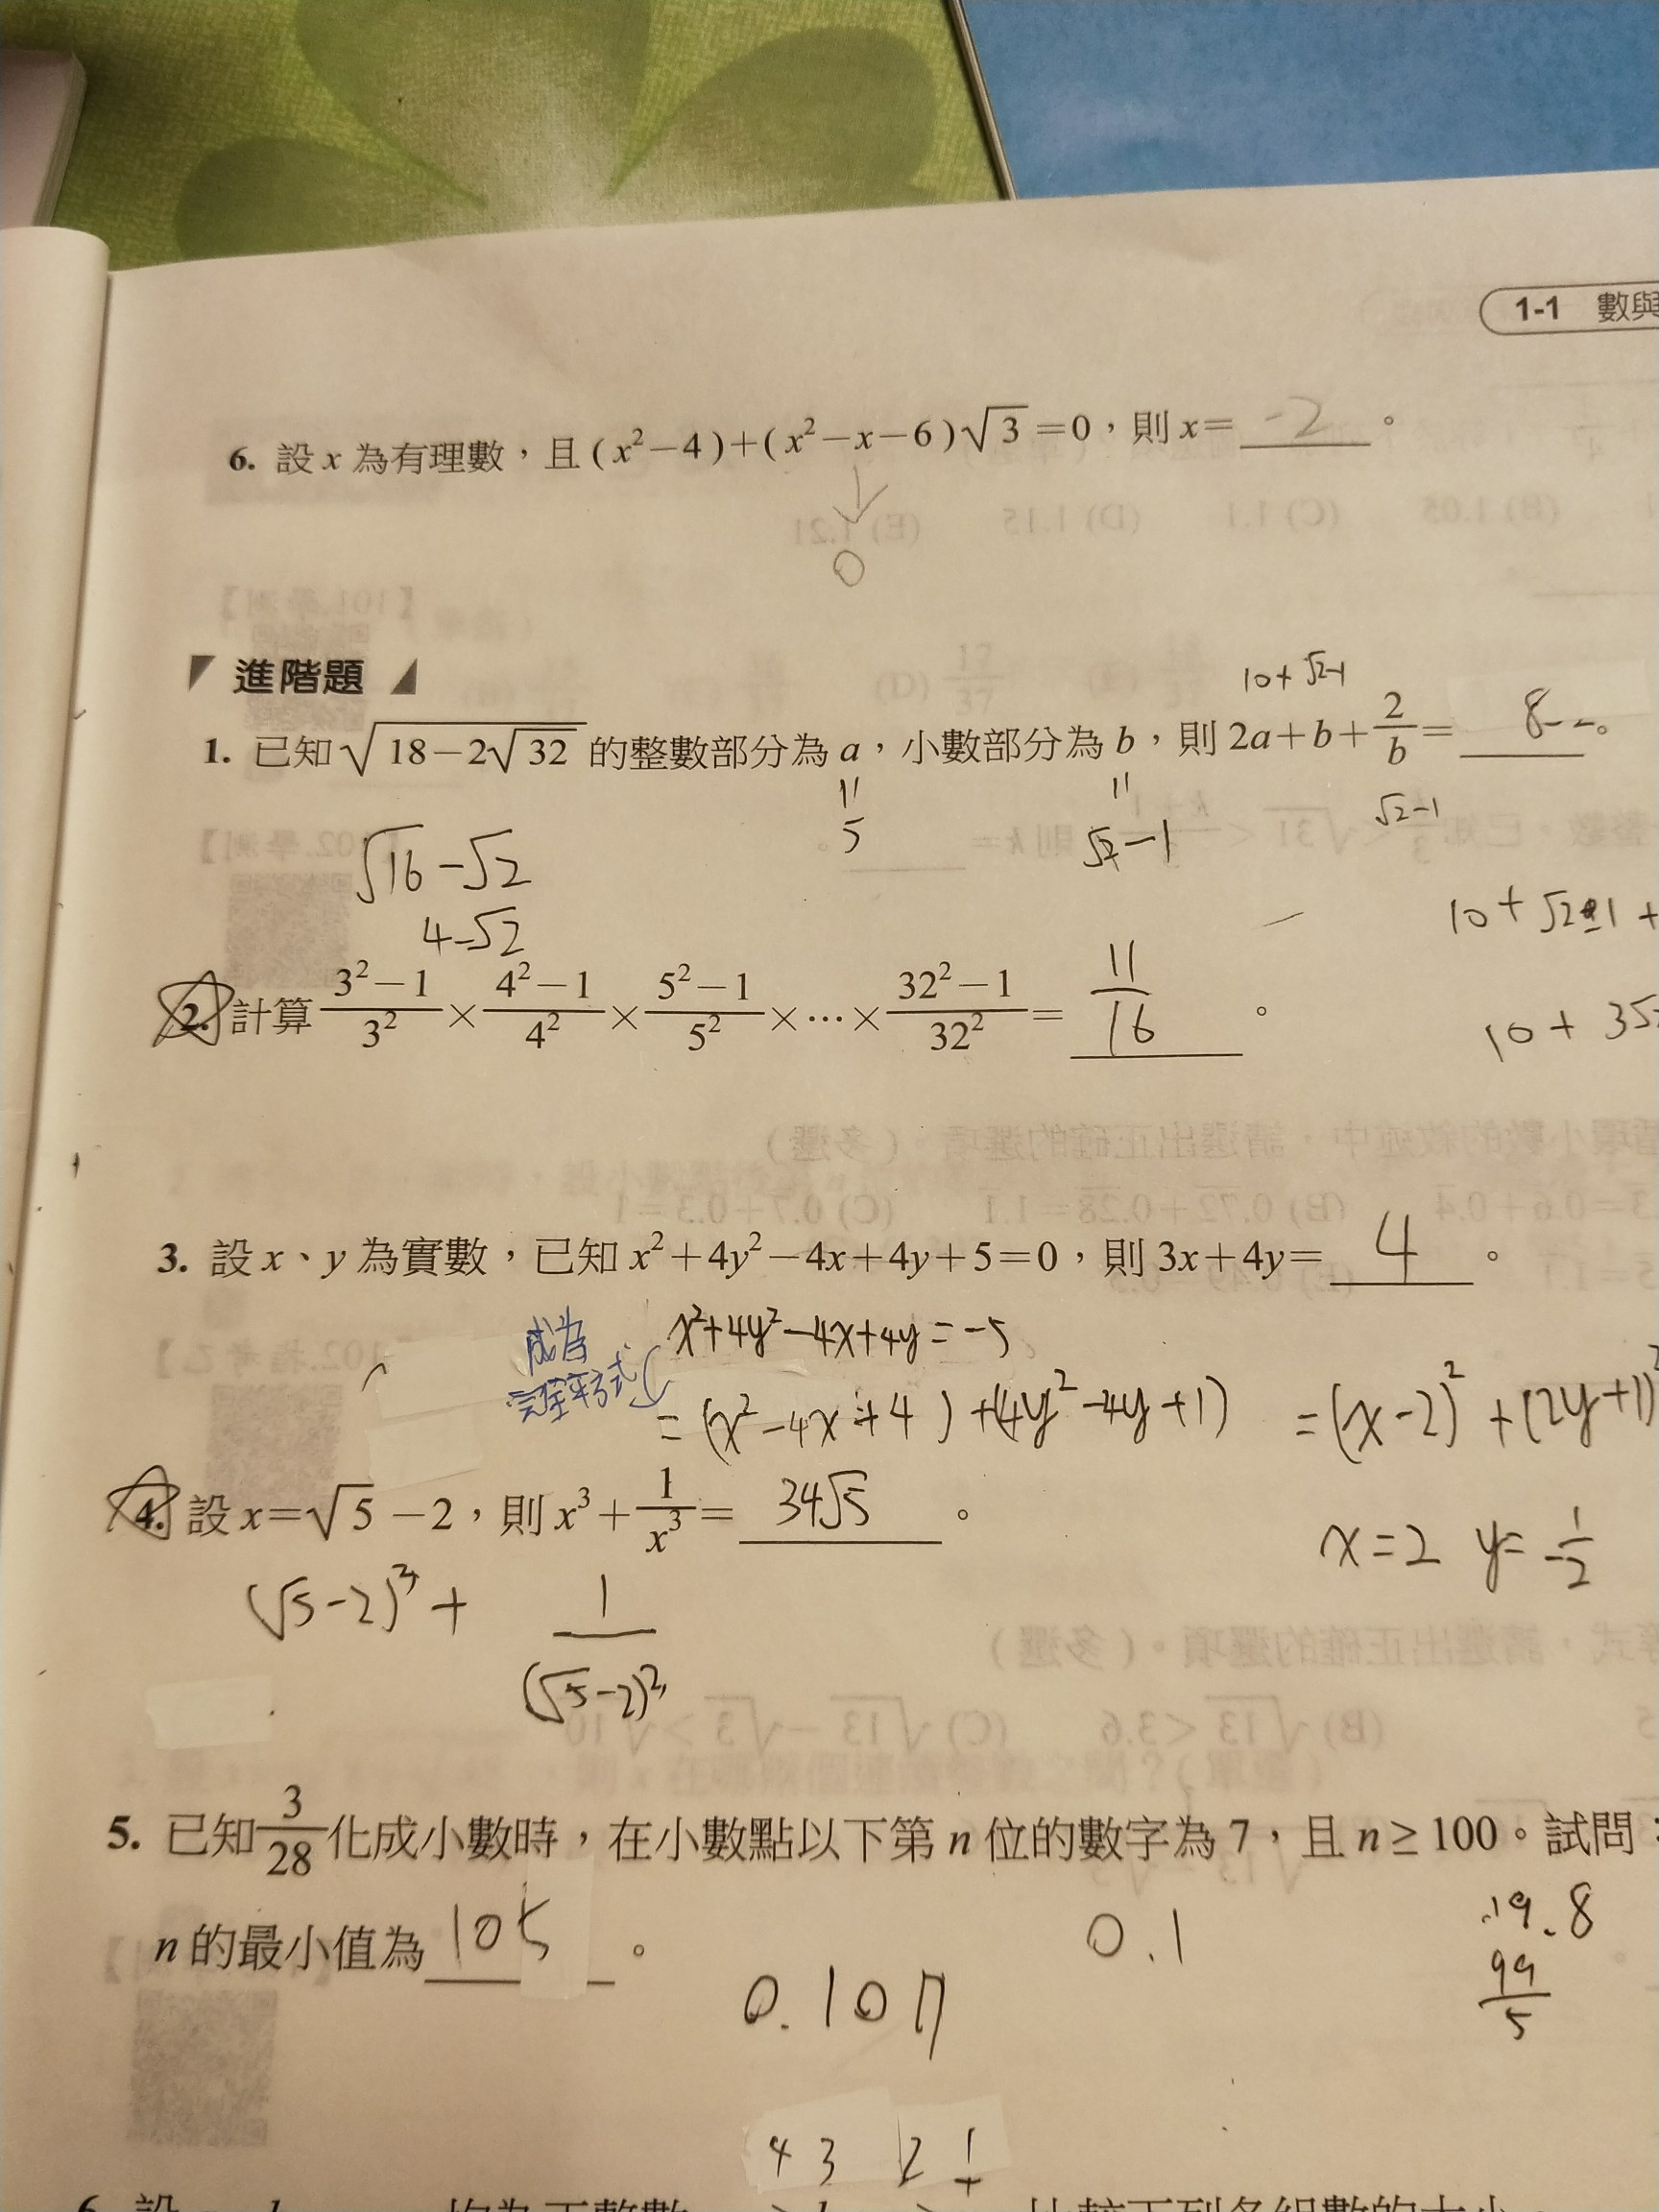 1-1 數與
6. 設 x 為有理數，且 (x²−4)+(x²−x−6)√3=0，則 x= -2 。
↓
0
進階題
10+√2-1
1. 已知 √(18−2√32) 的整數部分為 a，小數部分為 b，則 2a+b+2/b= 8 。
" "
5 √2-1 √2-1
√16-√2
4-√2
10+√2-1+
2. 計算 (3²−1)/3² × (4²−1)/4² × (5²−1)/5² ×⋯× (32²−1)/32² = 11/16 。
10+
3. 設 x、y 為實數，已知 x²+4y²−4x+4y+5=0，則 3x+4y= 4 。
成為
完全平方式
x²+4y²-4x+4y=-5
=(x²-4x+4)+(4y²-4y+1) =(x-2)²+(2y+1)²
4. 設 x=√5−2，則 x³+1/x³= 34√5 。
x=2 y=-1/2
(√5-2)³+ 1/(√5-2)³
5. 已知 3/28 化成小數時，在小數點以下第 n 位的數字為 7，且 n≥100。試問：
n 的最小值為 105 。
0.1
19.8
99
5
0.107
4 3 2 1